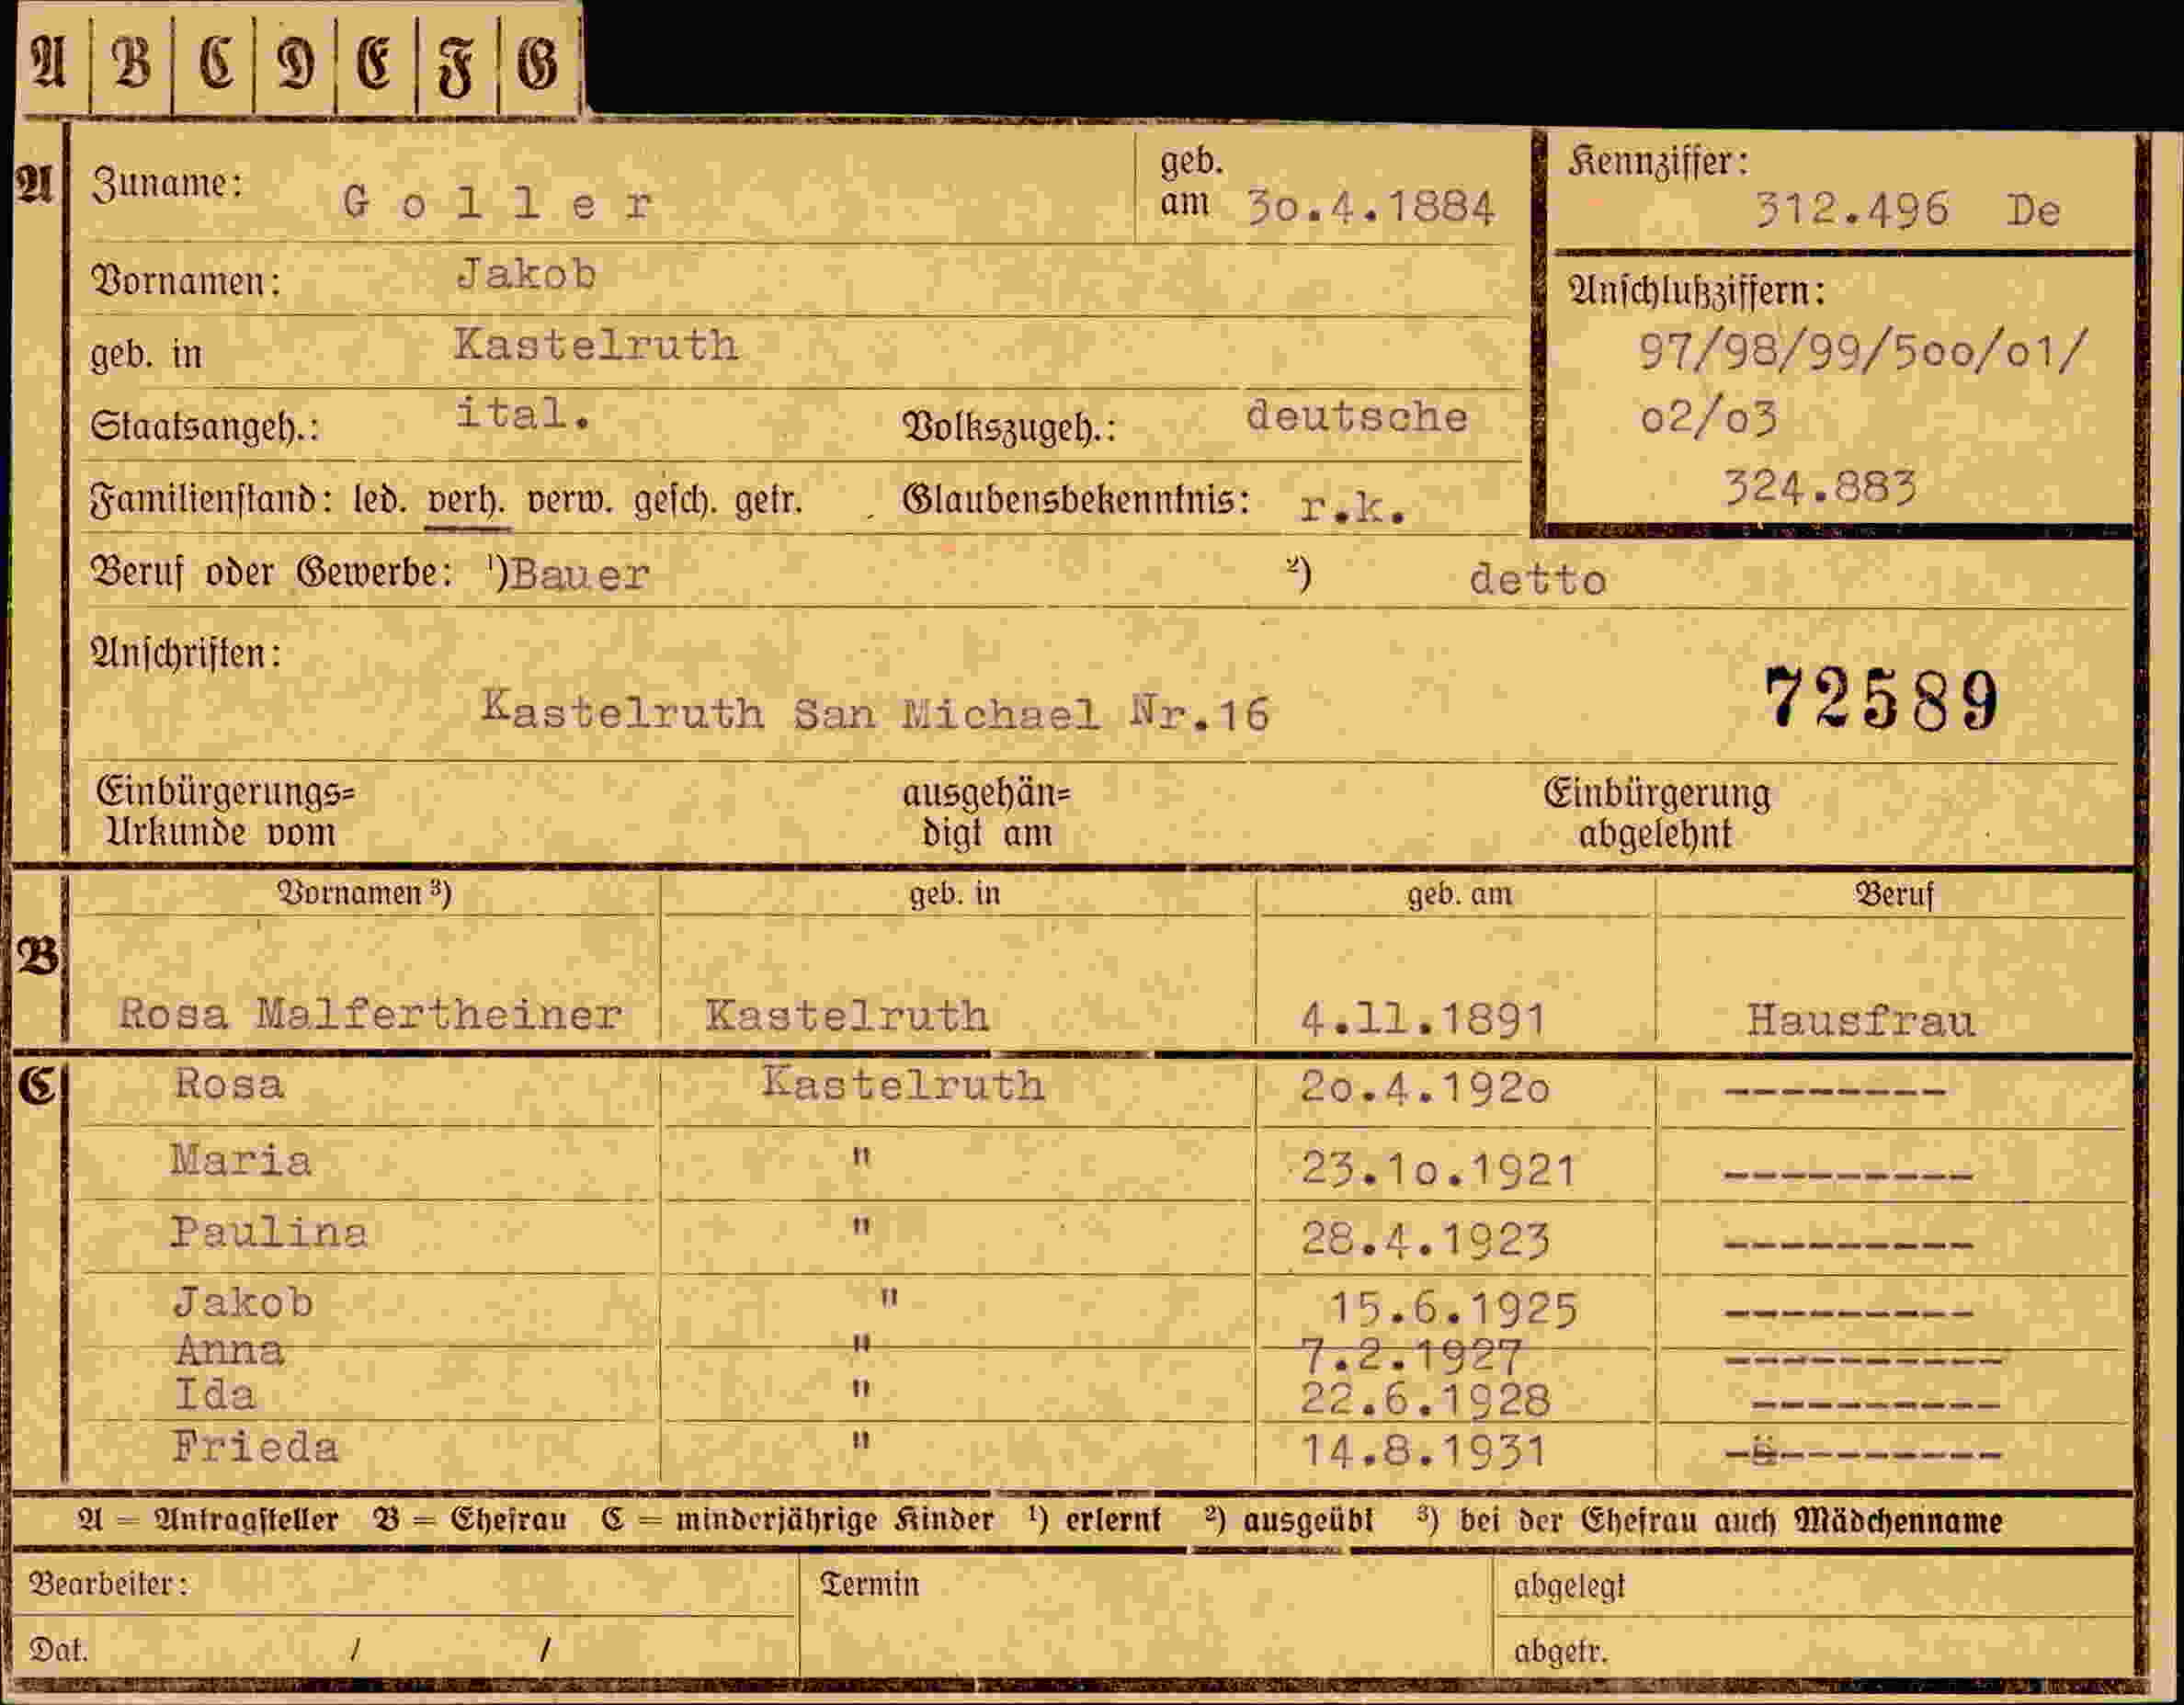 A B C D E F G
A Zuname: Goller geb. am 30.4.1884 Kennziffer: 312.496 De
Vornamen: Jakob
Anschlußziffern:
geb. in Kastelruth 97/98/99/5oo/o1/
Staatsangeh.: ital. Volkszugeh.: deutsche o2/o3
Familienstand: led. verh. verw. gesch. getr. Glaubensbekenntnis: r.k. 324.883
Beruf oder Gewerbe: ¹)Bauer ²) detto
Anschriften:
Kastelruth San Michael Nr.16 72589
Einbürgerungs= ausgehän= Einbürgerung
Urkunde vom digt am abgelehnt
Vornamen ³) geb. in geb. am Beruf
B
Rosa Malfertheiner Kastelruth 4.11.1891 Hausfrau
C Rosa Kastelruth 2o.4.192o --------
Maria " 23.1o.1921 ---------
Paulina " 28.4.1923 ---------
Jakob " 15.6.1925 ---------
Anna " 7.2.1927 ----------
Ida " 22.6.1928 ---------
Frieda " 14.8.1931 ----------
A = Antragsteller B = Ehefrau C = minderjährige Kinder ¹) erlernt ²) ausgeübt ³) bei der Ehefrau auch Mädchenname
Bearbeiter: Termin abgelegt
Dat. / / abgetr.